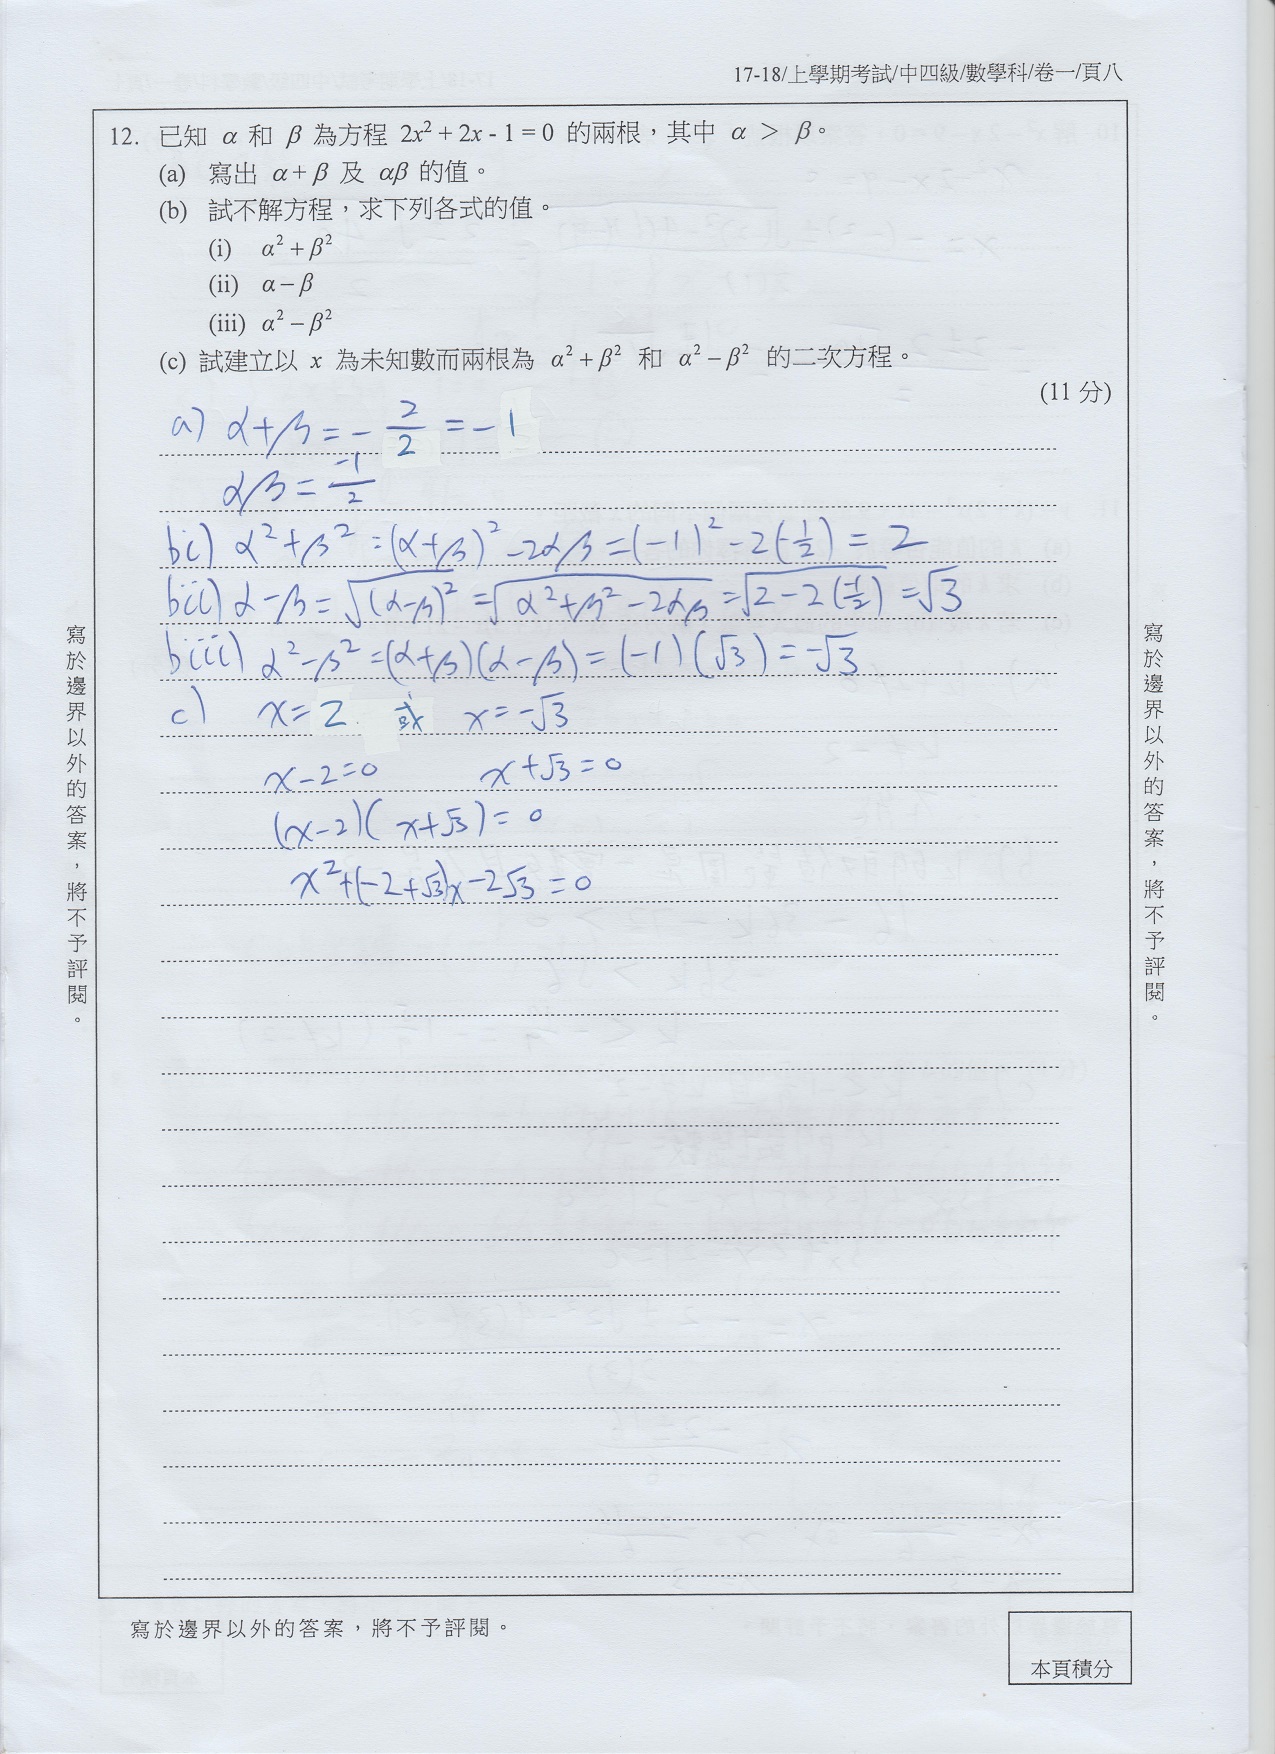 17-18/上學期考試/中四級/數學科/卷一/頁八
12. 已知 α 和 β 為方程 2x² + 2x - 1 = 0 的兩根，其中 α > β。
(a) 寫出 α + β 及 αβ 的值。
(b) 試不解方程，求下列各式的值。
(i) α² + β²
(ii) α − β
(iii) α² − β²
(c) 試建立以 x 為未知數而兩根為 α² + β² 和 α² − β² 的二次方程。
(11 分)
a) α+β = - 2/2 = -1
αβ = -1/2
bi) α²+β² = (α+β)² - 2αβ = (-1)² - 2(-1/2) = 2
bii) α-β = √(α-β)² = √α²+β²-2αβ = √2-2(-1/2) = √3
biii) α²-β² = (α+β)(α-β) = (-1)(√3) = -√3
c) x = 2 或 x = -√3
x-2=0 x+√3=0
(x-2)(x+√3)=0
x²+(-2+√3)x-2√3=0
寫於邊界以外的答案，將不予評閱。
寫於邊界以外的答案，將不予評閱。
寫於邊界以外的答案，將不予評閱。
本頁積分